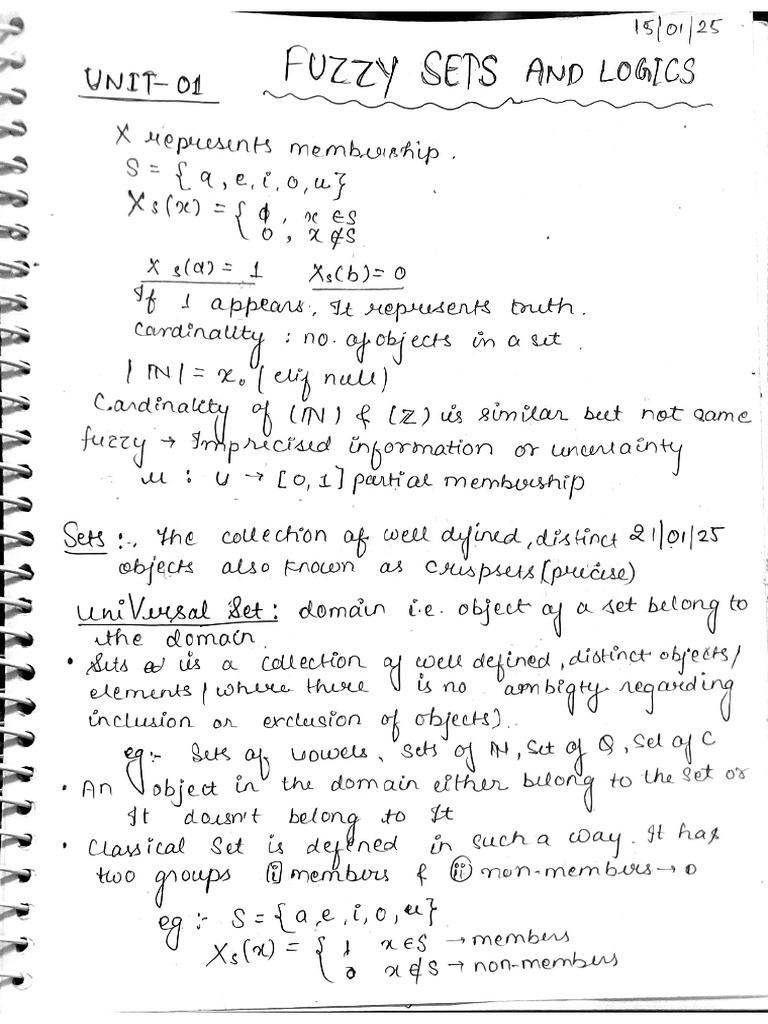 15/01/25
UNIT-01 FUZZY SETS AND LOGICS
X represents membership.
S = {a, e, i, o, u}
Xs(x) = { 1, x ∈ S
0, x ∉ S
Xs(a) = 1 Xs(b) = 0
If 1 appears, It represents truth.
Cardinality : no. of objects in a set.
|IN| = x₀ (elif null)
Cardinality of (IN) & (Z) is similar but not same
fuzzy → Imprecised information or uncertainty
μ : U → [0,1] partial membership
Sets :. The collection of well defined, distinct 21/01/25
objects also known as crispsets (precise)
UniVersal Set : domain i.e. object of a set belong to
the domain
• Sets is a collection of well defined, distinct objects/
elements (where there is no ambigty regarding
inclusion or exclusion of objects).
eg:- Sets of vowels, Sets of IN, Set of Q, Set of C
• An object in the domain either belong to the set or
It doesn't belong to It
• Classical Set is defined in such a way. It has
two groups (i) members & (ii) non-members → 0
eg:- S = {a, e, i, o, u}
Xs(x) = { 1 x ∈ S → members
0 x ∉ S → non-members